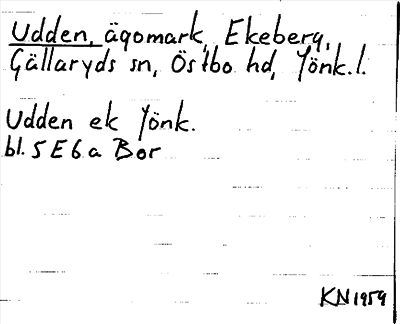 Udden, ägomark, Ekeberg,
Gällaryds sn, Östbo hd, Jönk.l.
Udden ek Jönk.
bl. 5 E 6 a Bor
KN 1959